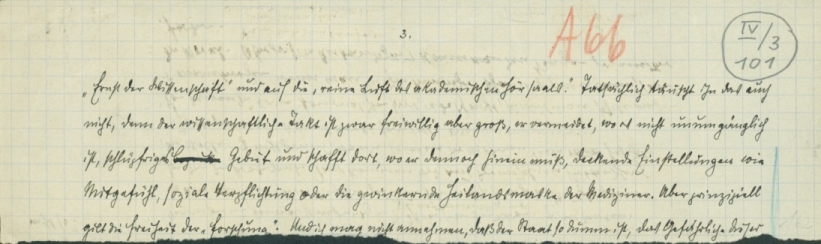 3.
A66
IV/3
101
„Ernst der Wissenschaft" und auf die „reine Luft des akademischen Hörsaals." Tatsächlich täuscht ihn das auch
nicht, denn der wissenschaftliche Takt ist zwar freiwillig aber groß, er vermeidet, wo es nicht unumgänglich
ist, schlüpfriges Gebiet und schafft dort, wo er dennoch hinein muß, deckende Einstellungen wie
Mitgefühl, soziale Verpflichtung oder die zwinkernde Heilandsmaske der Mediziner. Aber prinzipiell
gilt die Freiheit der „Forschung". Und ich mag nicht annehmen, daß der Staat so dumm ist, das Gefährliche dieser